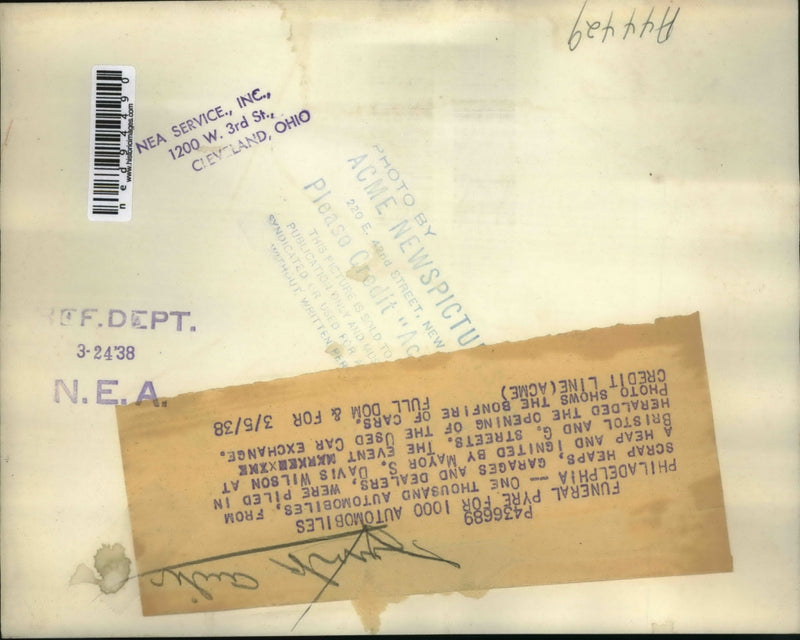 A44429
ned94490
www.historicimages.com
NEA SERVICE., INC.,
1200 W. 3rd St.,
CLEVELAND, OHIO
PHOTO BY
ACME NEWSPICTU
220 E. 42nd STREET, NEW
Please Credit "Ac
THIS PICTURE IS SOLD TO
PUBLICATION ONLY AND MU
SYNDICATED OR USED FOR
WITHOUT WRITTEN PER
REF. DEPT.
3-24'38
N.E.A.
P436689
FUNERAL PYRE FOR 1000 AUTOMOBILES
PHILADELPHIA -- ONE THOUSAND AUTOMOBILES, FROM
SCRAP HEAPS, GARAGES AND DEALERS, WERE PILED IN
A HEAP AND IGNITED BY MAYOR S. DAVIS WILSON AT
BRISTOL AND G. STREETS. THE EVENT
HERALDED THE OPENING OF THE USED CAR EXCHANGE.
PHOTO SHOWS THE BONFIRE OF CARS.
CREDIT LINE(ACME) FULL DOM & FOR 3/5/38